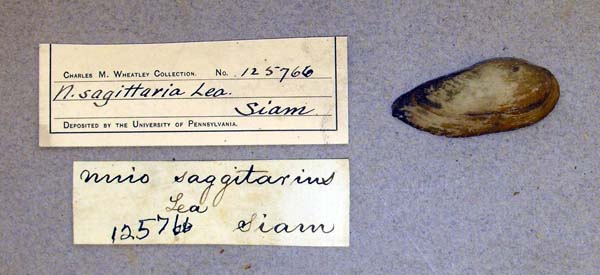 CHARLES M. WHEATLEY COLLECTION. No. 125766
N. sagittaria Lea.
Siam
DEPOSITED BY THE UNIVERSITY OF PENNSYLVANIA.
Unio saggitarius
Lea
125766 Siam